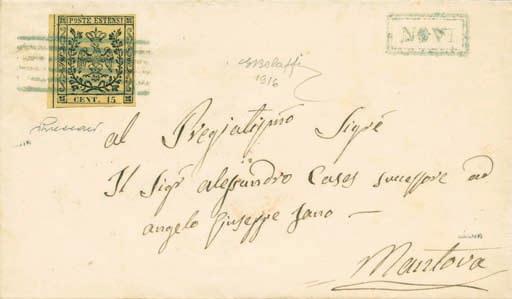 POSTE ESTENSI
CENT. 15
NOVI
EBolaffi
1916
al Pregiatissmo Sigre
Il Sigr alessandro Cases successore ad
angelo Giuseppe Fano —
Mantova